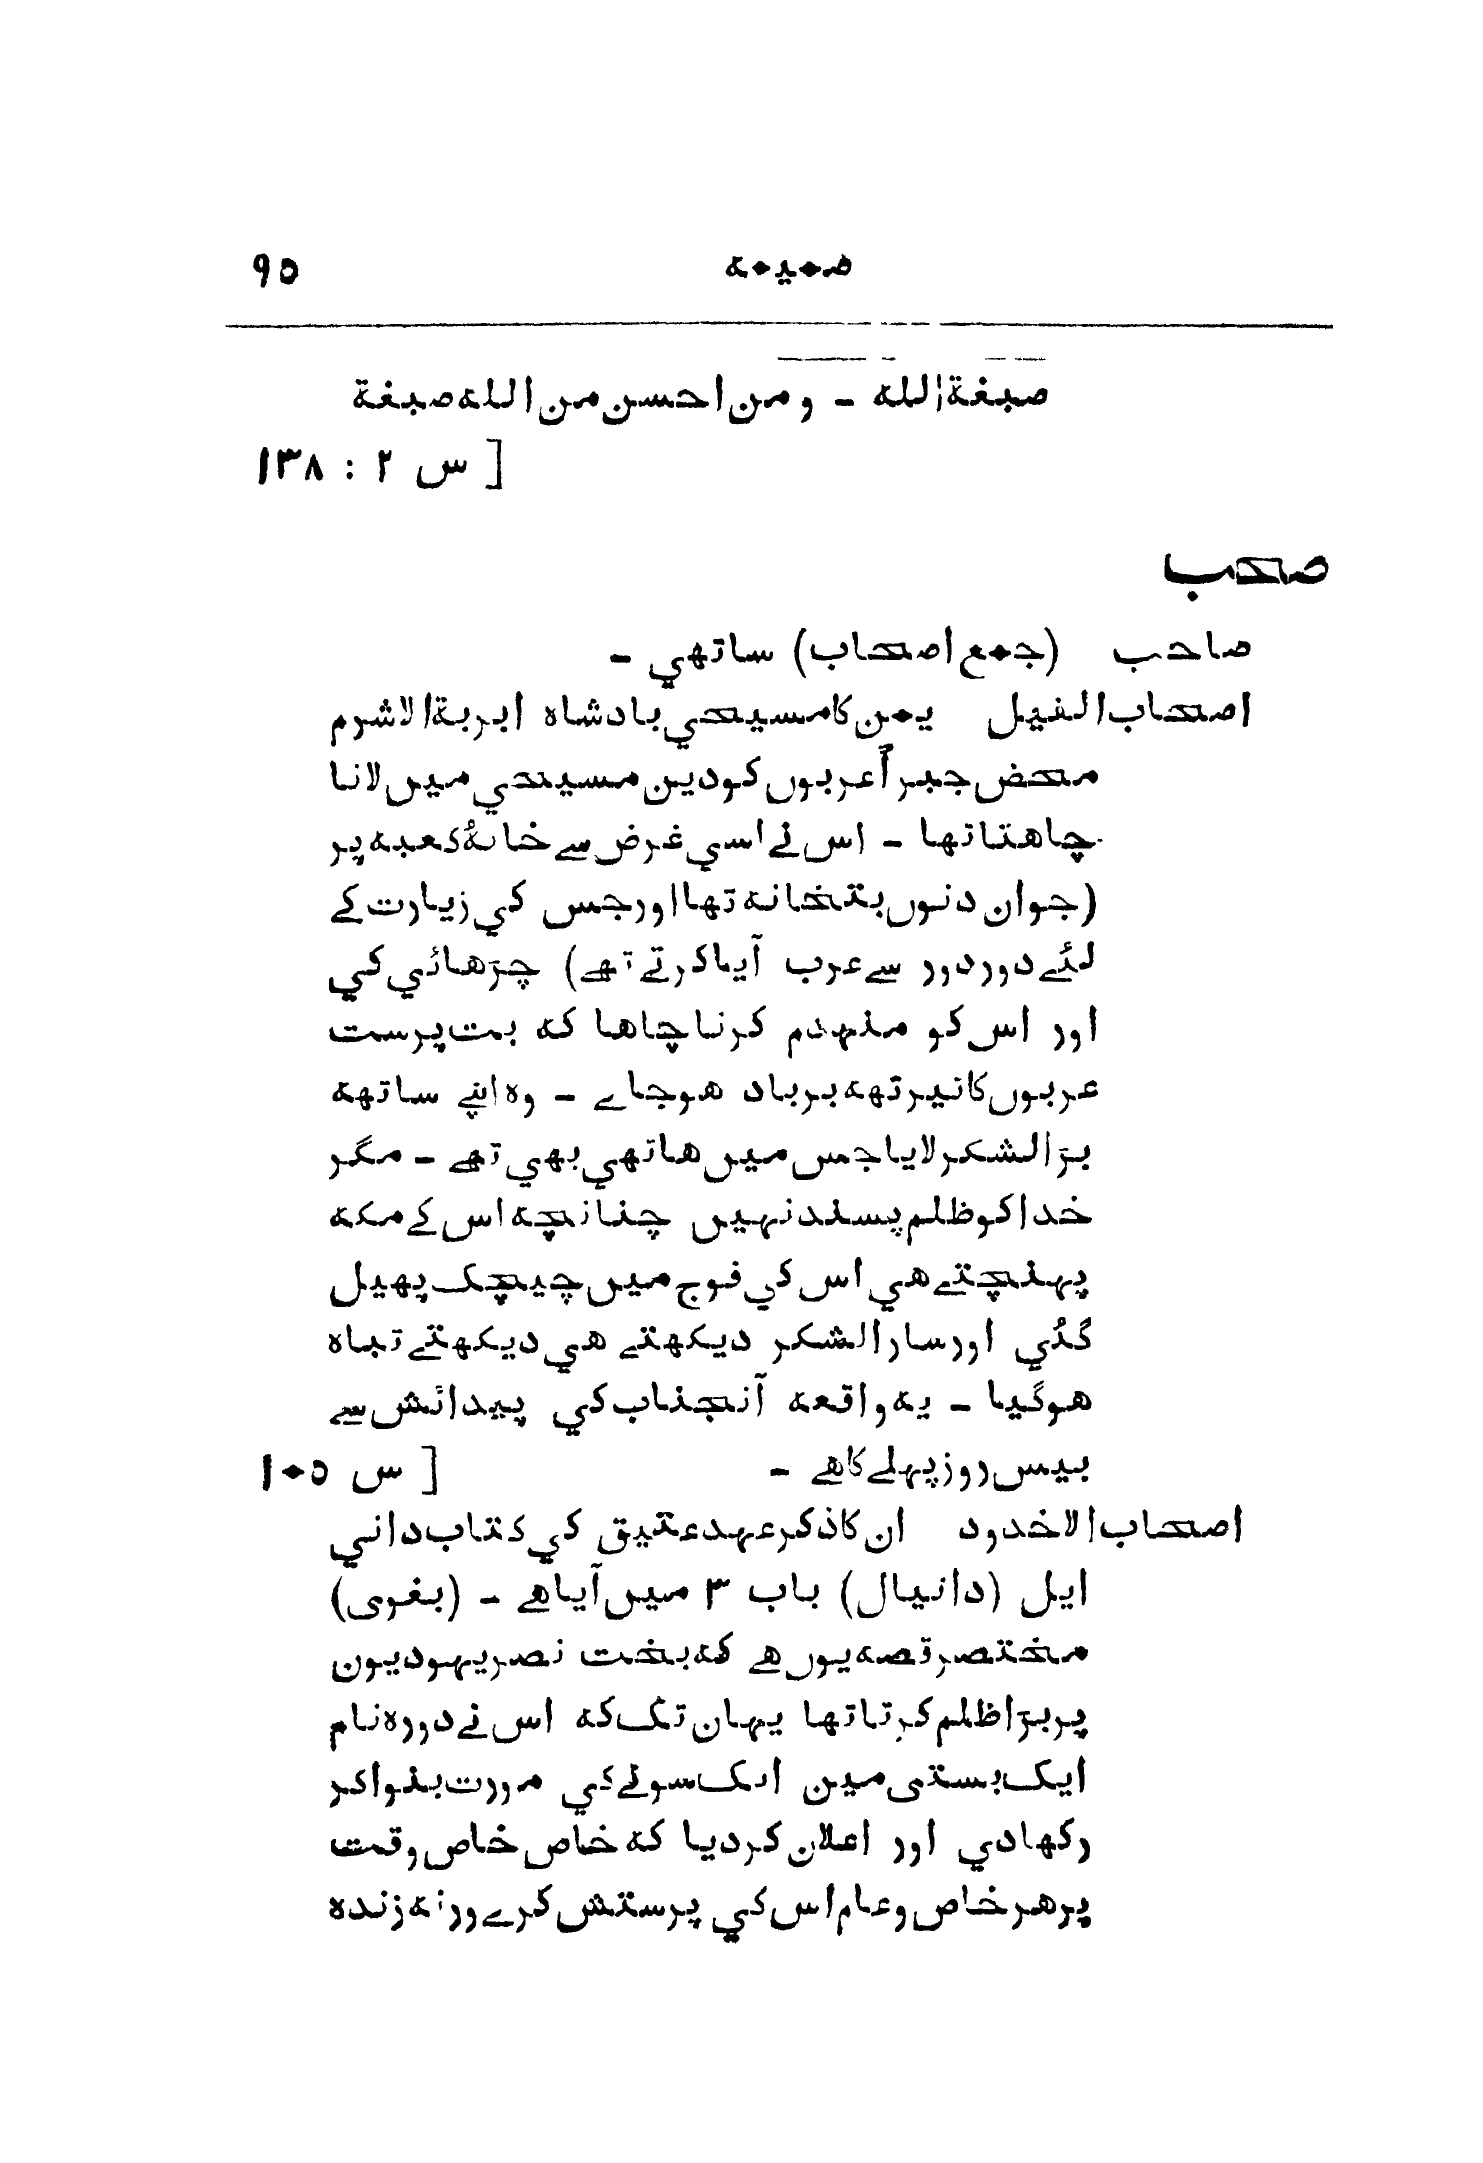 ضمیمه ۹۵
صبغةالله - ومن احسن من الله صبغة
[ س ۲ : ۱۳۸
صحب
صاحب (جمع اصحاب) ساتهي -
اصحاب الفیل یمن کا مسیحي بادشاه ابربة الاشرم
محض جبراً عربوں کو دین مسیحي میں لانا
چاهتا تها - اس نے اسي غرض سے خانۂ کعبه پر
(جو ان دنوں بتخانه تها اور جس کي زیارت کے
لئے دور دور سے عرب آیا کرتے تهے) چڑهائي کي
اور اس کو منهدم کرنا چاها که بت پرست
عربوں کا تیرتهه برباد هوجاے - وه اپنے ساتهه
بڑا لشکر لایا جس میں هاتهي بهي تهے - مگر
خدا کو ظلم پسند نهیں چنانچه اس کے مکه
پهنچتے هي اس کي فوج میں چیچک پهیل
گئي اور سارا لشکر دیکهتے هي دیکهتے تباه
هوگیا - یه واقعه آنجناب کي پیدائش سے
بیس روز پهلے کا هے - [ س ۱۰۵
اصحاب الاخدود ان کا ذکر عهد عتیق کي کتاب داني
ایل (دانیال) باب ۳ میں آیا هے - (بغوی)
مختصر قصه یوں هے که بخت نصر یهودیون
پر بڑا ظلم کرتا تها یهان تک که اس نے دوره نام
ایک بستی مین ایک سونے کي مورت بنوا کر
رکهادي اور اعلان کر دیا که خاص خاص وقت
پر هر خاص و عام اس کي پرستش کرے ورنه زنده